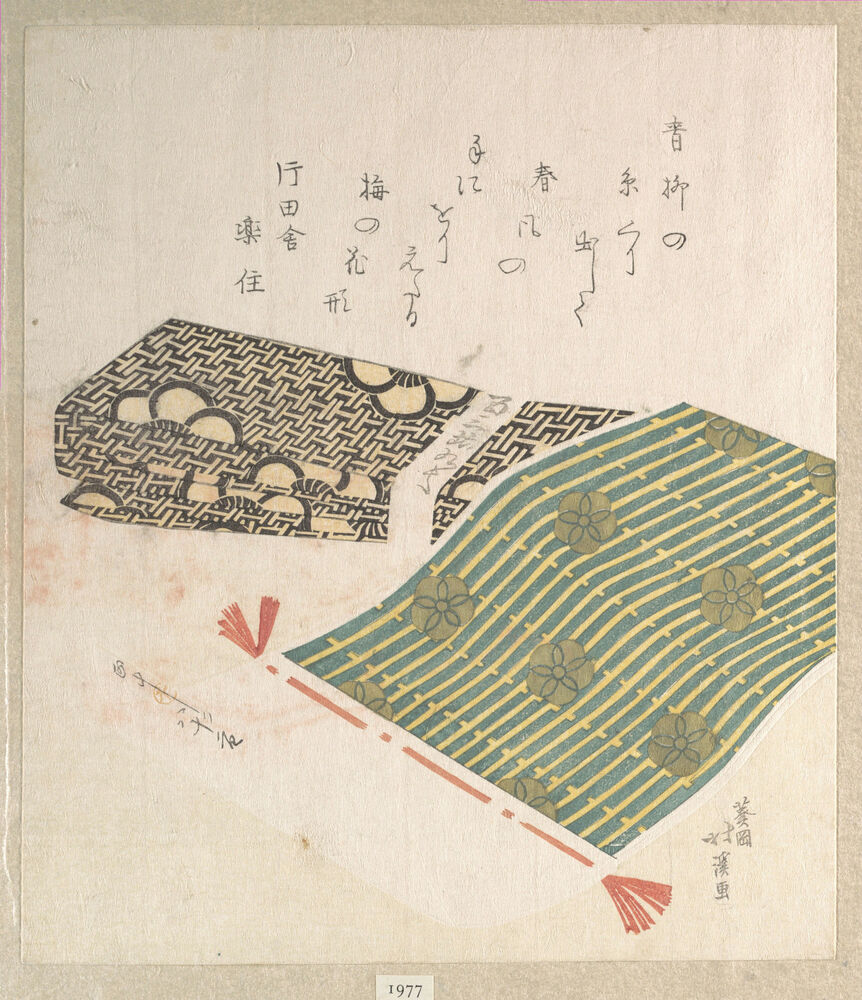 青柳の
糸くり
出して
春風の
手に
をり
えたる
梅の花
形
行田舎
楽住
葵岡
北渓画
1977